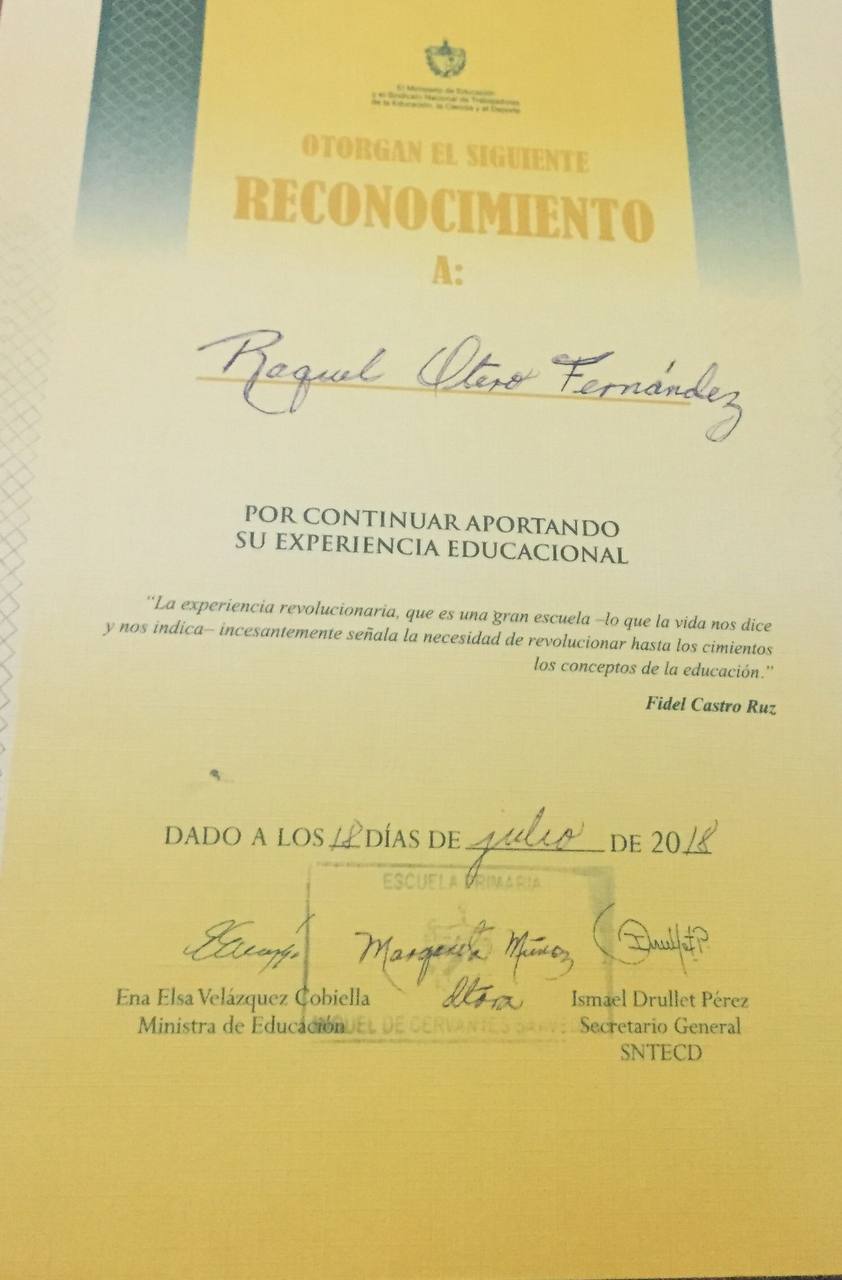 El Ministerio de Educación
y el Sindicato Nacional de Trabajadores
de la Educación, la Ciencia y el Deporte
OTORGAN EL SIGUIENTE
RECONOCIMIENTO
A:
Raquel Otero Fernández
POR CONTINUAR APORTANDO
SU EXPERIENCIA EDUCACIONAL
“La experiencia revolucionaria, que es una gran escuela –lo que la vida nos dice
y nos indica– incesantemente señala la necesidad de revolucionar hasta los cimientos
los conceptos de la educación.”
Fidel Castro Ruz
DADO A LOS 18 DÍAS DE julio DE 2018
ESCUELA PRIMARIA
Margarita Muñoz
Dtora
Ena Elsa Velázquez Cobiella
Ministra de Educación
MIGUEL DE CERVANTES
Ismael Drullet Pérez
Secretario General
SNTECD